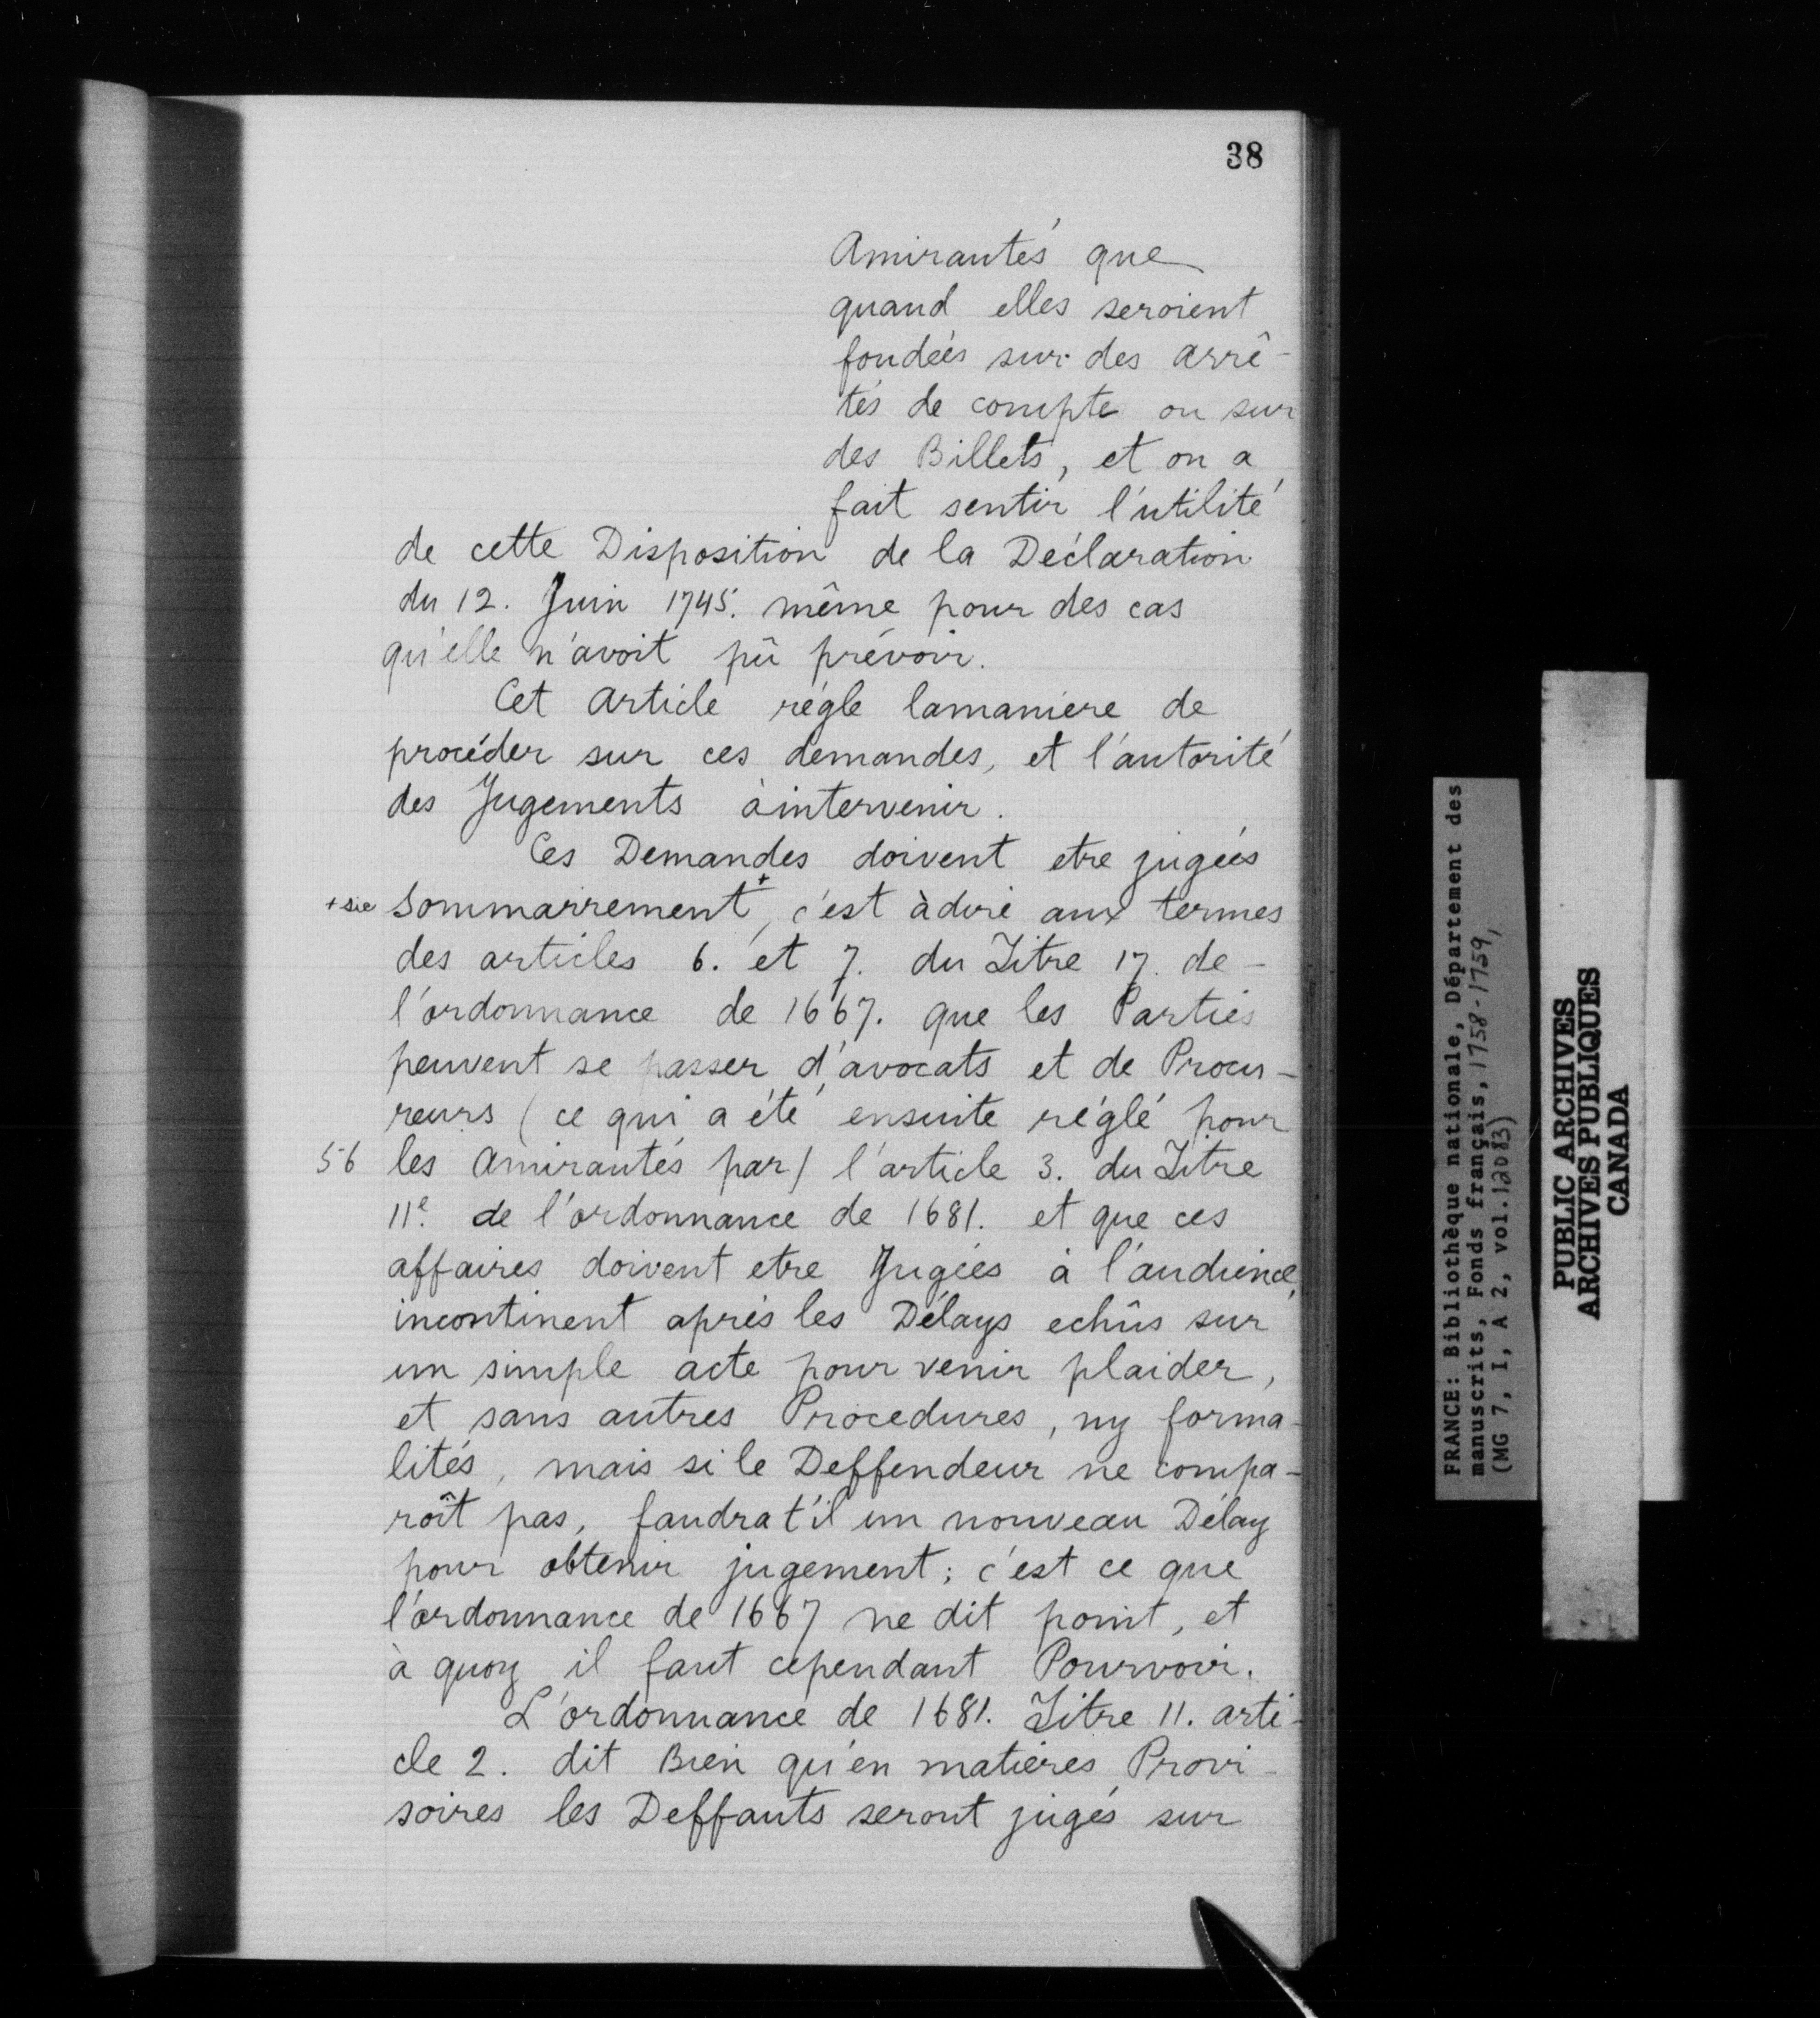 38
Amirautés que
quand elles seroient
fondées sur des arrê-
tés de compte ou sur
des Billets, et on a
fait sentir l'utilité
de cette Disposition de la Déclaration
du 12. Juin 1745. même pour des cas
qu'elle n'avoit pû prévoir.
Cet article régle lamaniere de
procéder sur ces demandes, et l'autorité
des Jugements àintervenir.
Ces Demandes doivent etre jugées
+ sic sommairrement+, c'est àdire aux termes
des articles 6. et 7. du Titre 17. de-
l'ordonnance de 1667. que les Parties
peuvent se passer d'avocats et de Procu-
reurs (ce qui a été ensuite réglé pour
56 les amirautés par/ l'article 3. du Titre
11e. de l'ordonnance de 1681. et que ces
affaires doivent etre Jugées à l'audience,
incontinent aprés les Délays echûs sur
un simple acte pour venir plaider,
et sans autres Procedures, ny forma-
lités, mais si le Deffendeur ne compa-
roît pas, faudrat'il un nouveau Délay
pour obtenir jugement; c'est ce que
l'ordonnance de 1667 ne dit point, et
à quoy il faut cependant Pourvoir.
L'ordonnance de 1681. Titre 11. arti-
cle 2. dit Bien qu'en matières Provi-
soires les Deffauts seront jugés sur
FRANCE: Bibliothèque nationale, Département des
manuscrits, Fonds français, 1758-1759,
(MG 7, I, A 2, vol. 12083)
PUBLIC ARCHIVES
ARCHIVES PUBLIQUES
CANADA